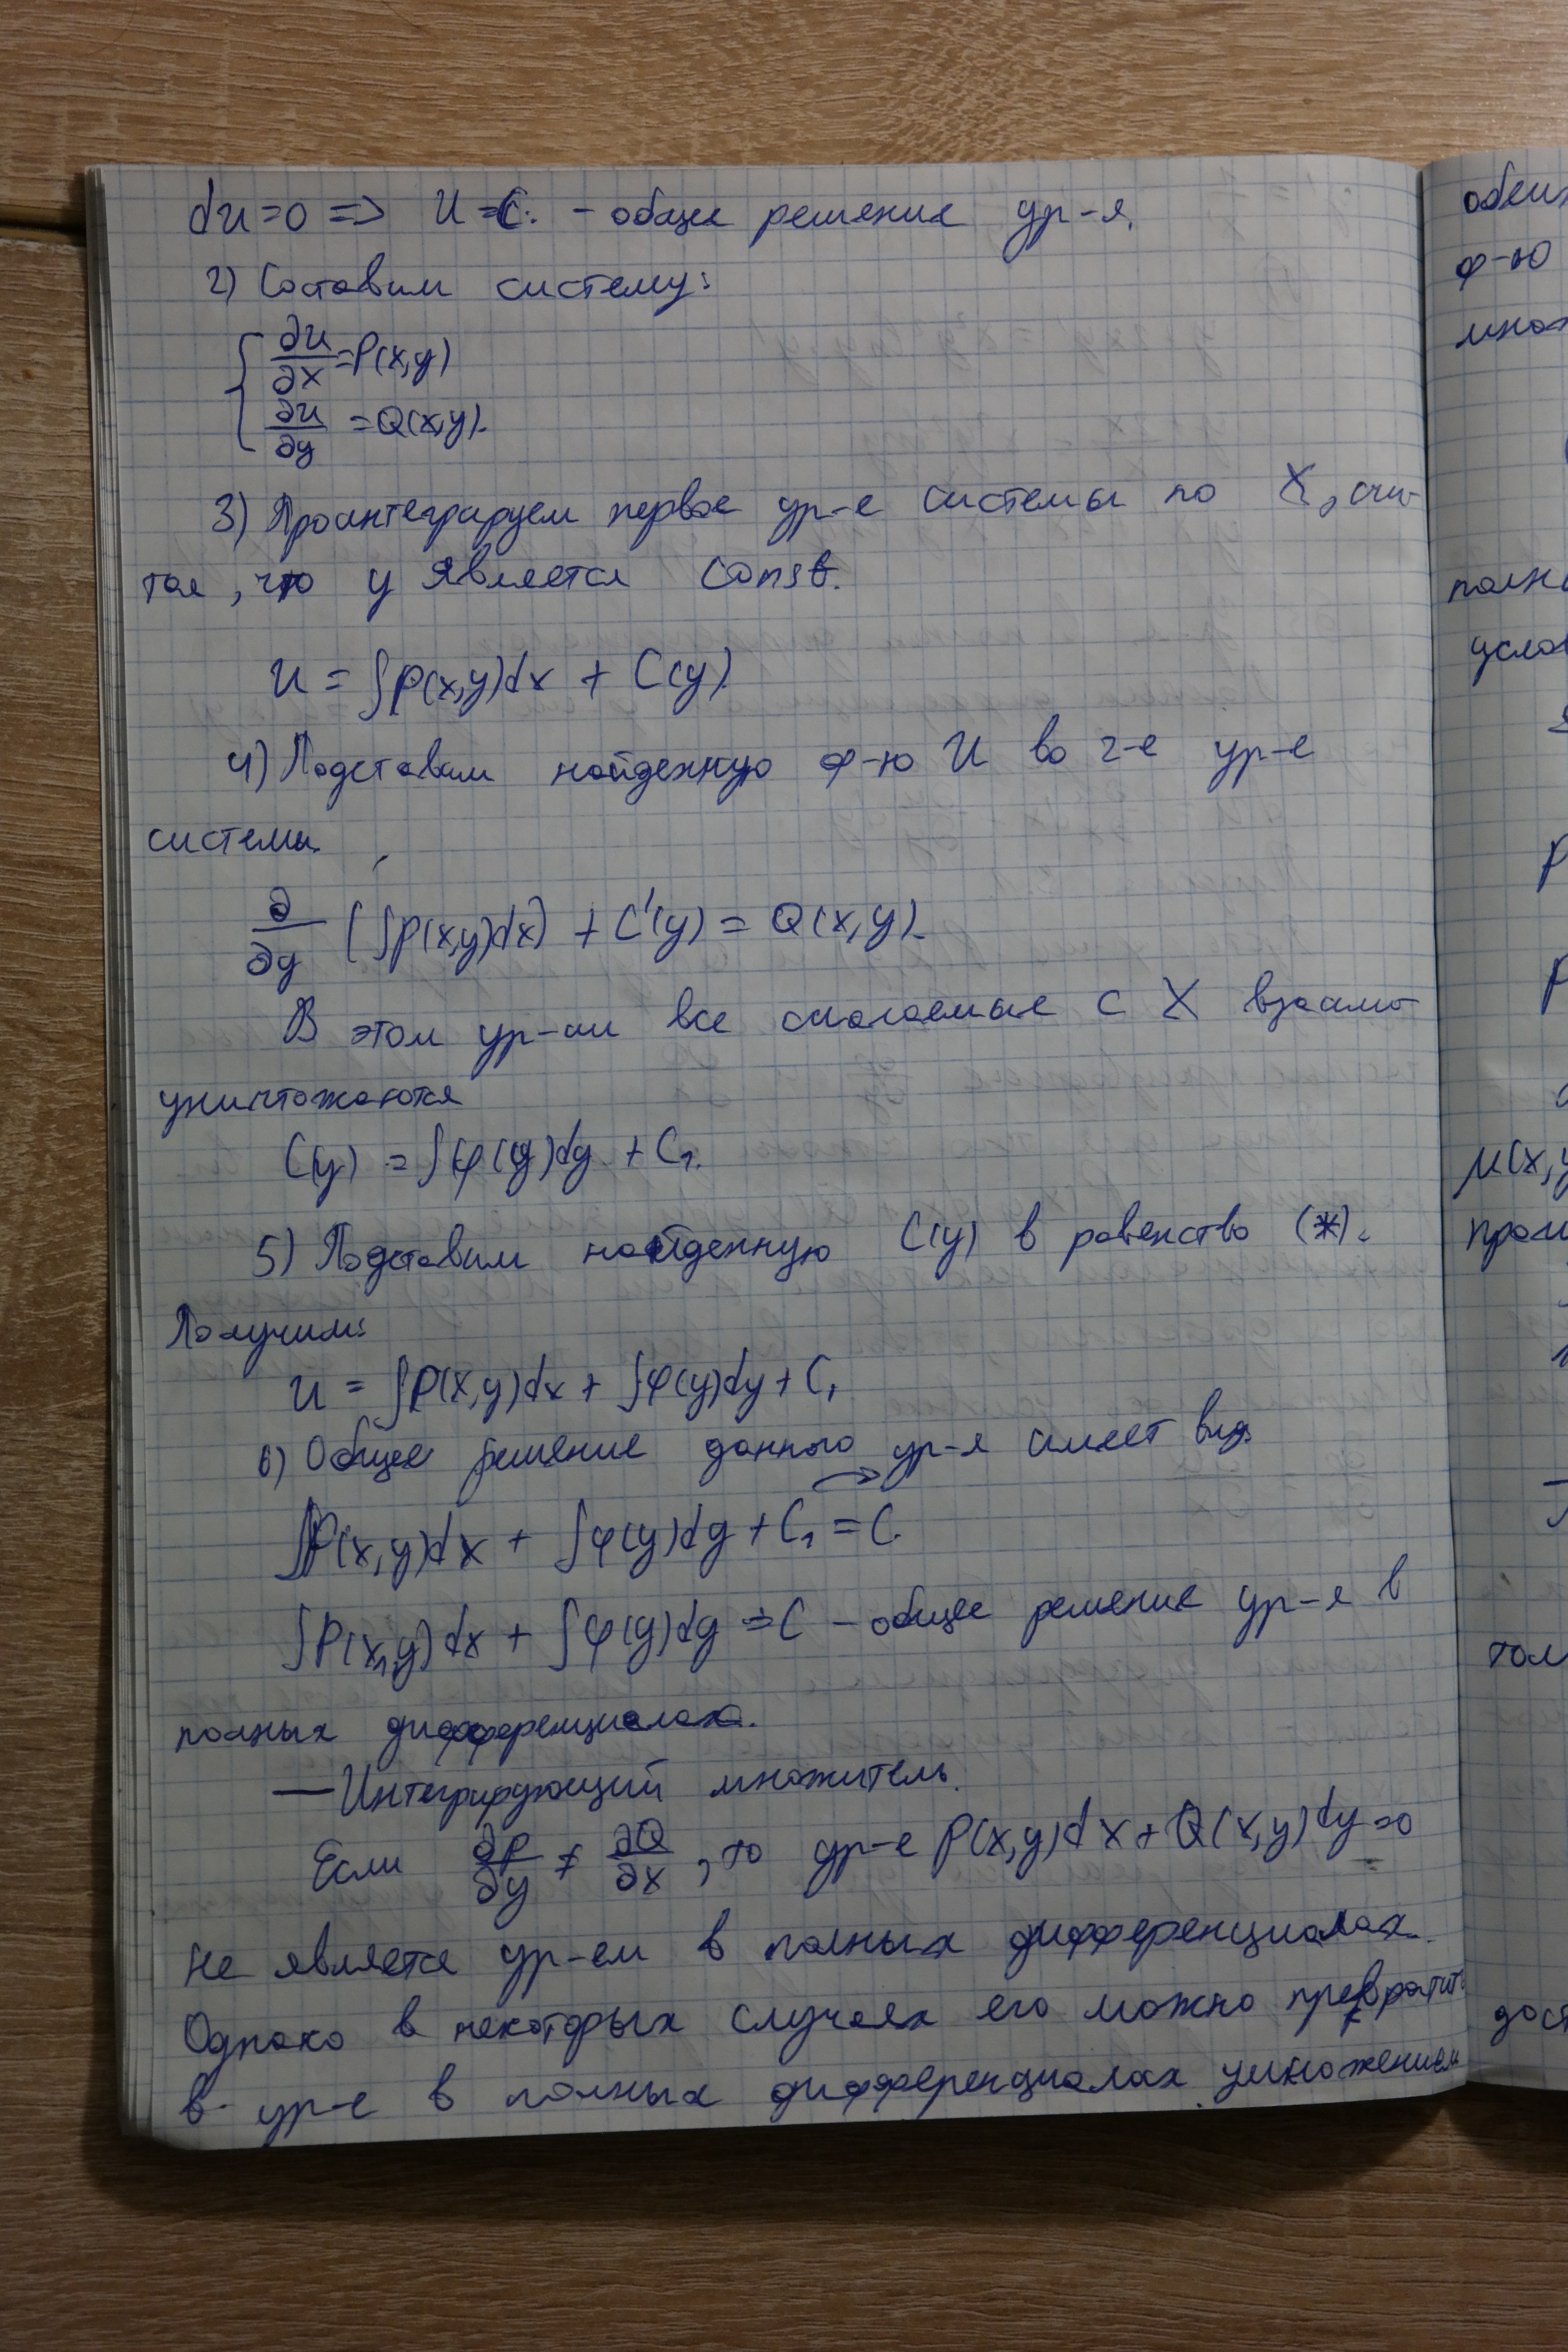 du=0 => U=C. - общее решение ур-я.
2) Составим систему:
{ ∂u/∂x = P(x,y)
∂u/∂y = Q(x,y).
3) Проинтегрируем первое ур-е системы по X, счи-
тая, что y является const.
U = ∫P(x,y)dx + C(y)
4) Подставим найденную ф-ю U во 2-е ур-е
системы.
∂/∂y (∫P(x,y)dx) + C'(y) = Q(x,y).
В этом ур-ии все слагаемые с X взаимо-
уничтожаются
C(y) = ∫φ(y)dy + C₁.
5) Подставим найденную C(y) в равенство (*).
Получим:
U = ∫P(x,y)dx + ∫φ(y)dy + C₁
6) Общее решение данного ур-я имеет вид.
∫P(x,y)dx + ∫φ(y)dy + C₁ = C.
∫P(x,y)dx + ∫φ(y)dy = C - общее решение ур-я в
полных дифференциалах.
— Интегрирующий множитель.
Если ∂P/∂y ≠ ∂Q/∂x, то ур-е P(x,y)dx + Q(x,y)dy = 0
не является ур-ем в полных дифференциалах.
Однако в некоторых случаях его можно превратить
в ур-е в полных дифференциалах умножением
ф-ю
μ(x,y